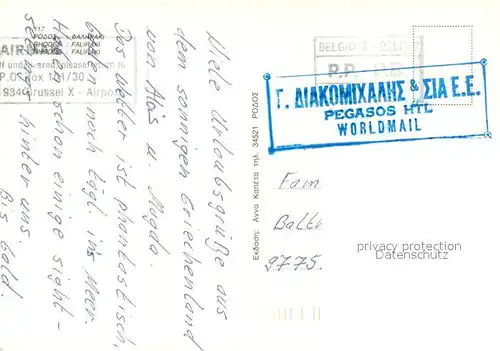 117
ΡΟΔΟΣ - ΦΑΛΗΡΑΚΙ
RHODES - FALIRAKI
RHODOS - FALIRAKI
AIRMAIL
If undelivered please return to
P.O. Box 1/1/30
1934 Brussel X - Airport
BELGIQUE - BELGIË
P.P. P.B.
Γ. ΔΙΑΚΟΜΙΧΑΛΗΣ & ΣΙΑ Ε.Ε.
PEGASOS HTL
WORLDMAIL
Viele Urlaubsgrüße aus
dem sonnigen Griechenland
von Alois u. Magda.
Das Wetter ist phantastisch,
baden noch tägl. im Meer.
Haben schon einige sight-
seeings hinter uns.
Bis bald.
Έκδοση: Άννα Καπέτα τηλ. 34521 ΡΟΔΟΣ
Fam
9775
privacy protection
Datenschutz